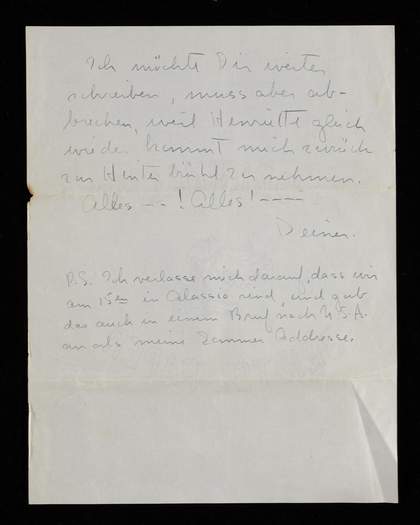 Ich möchte Dir weiter
schreiben, muss aber ab-
brechen, weil Henriette gleich
wieder kommt mich zurück
zur Hinterbrühl zu nehmen.
Alles -- ! Alles! ----
Deiner.
P.S. Ich verlasse mich darauf, dass wir
am 15ten in Alassio sind, und gab
das auch in einem Brief nach U.S.A.
an als meine Sommer Addresse.